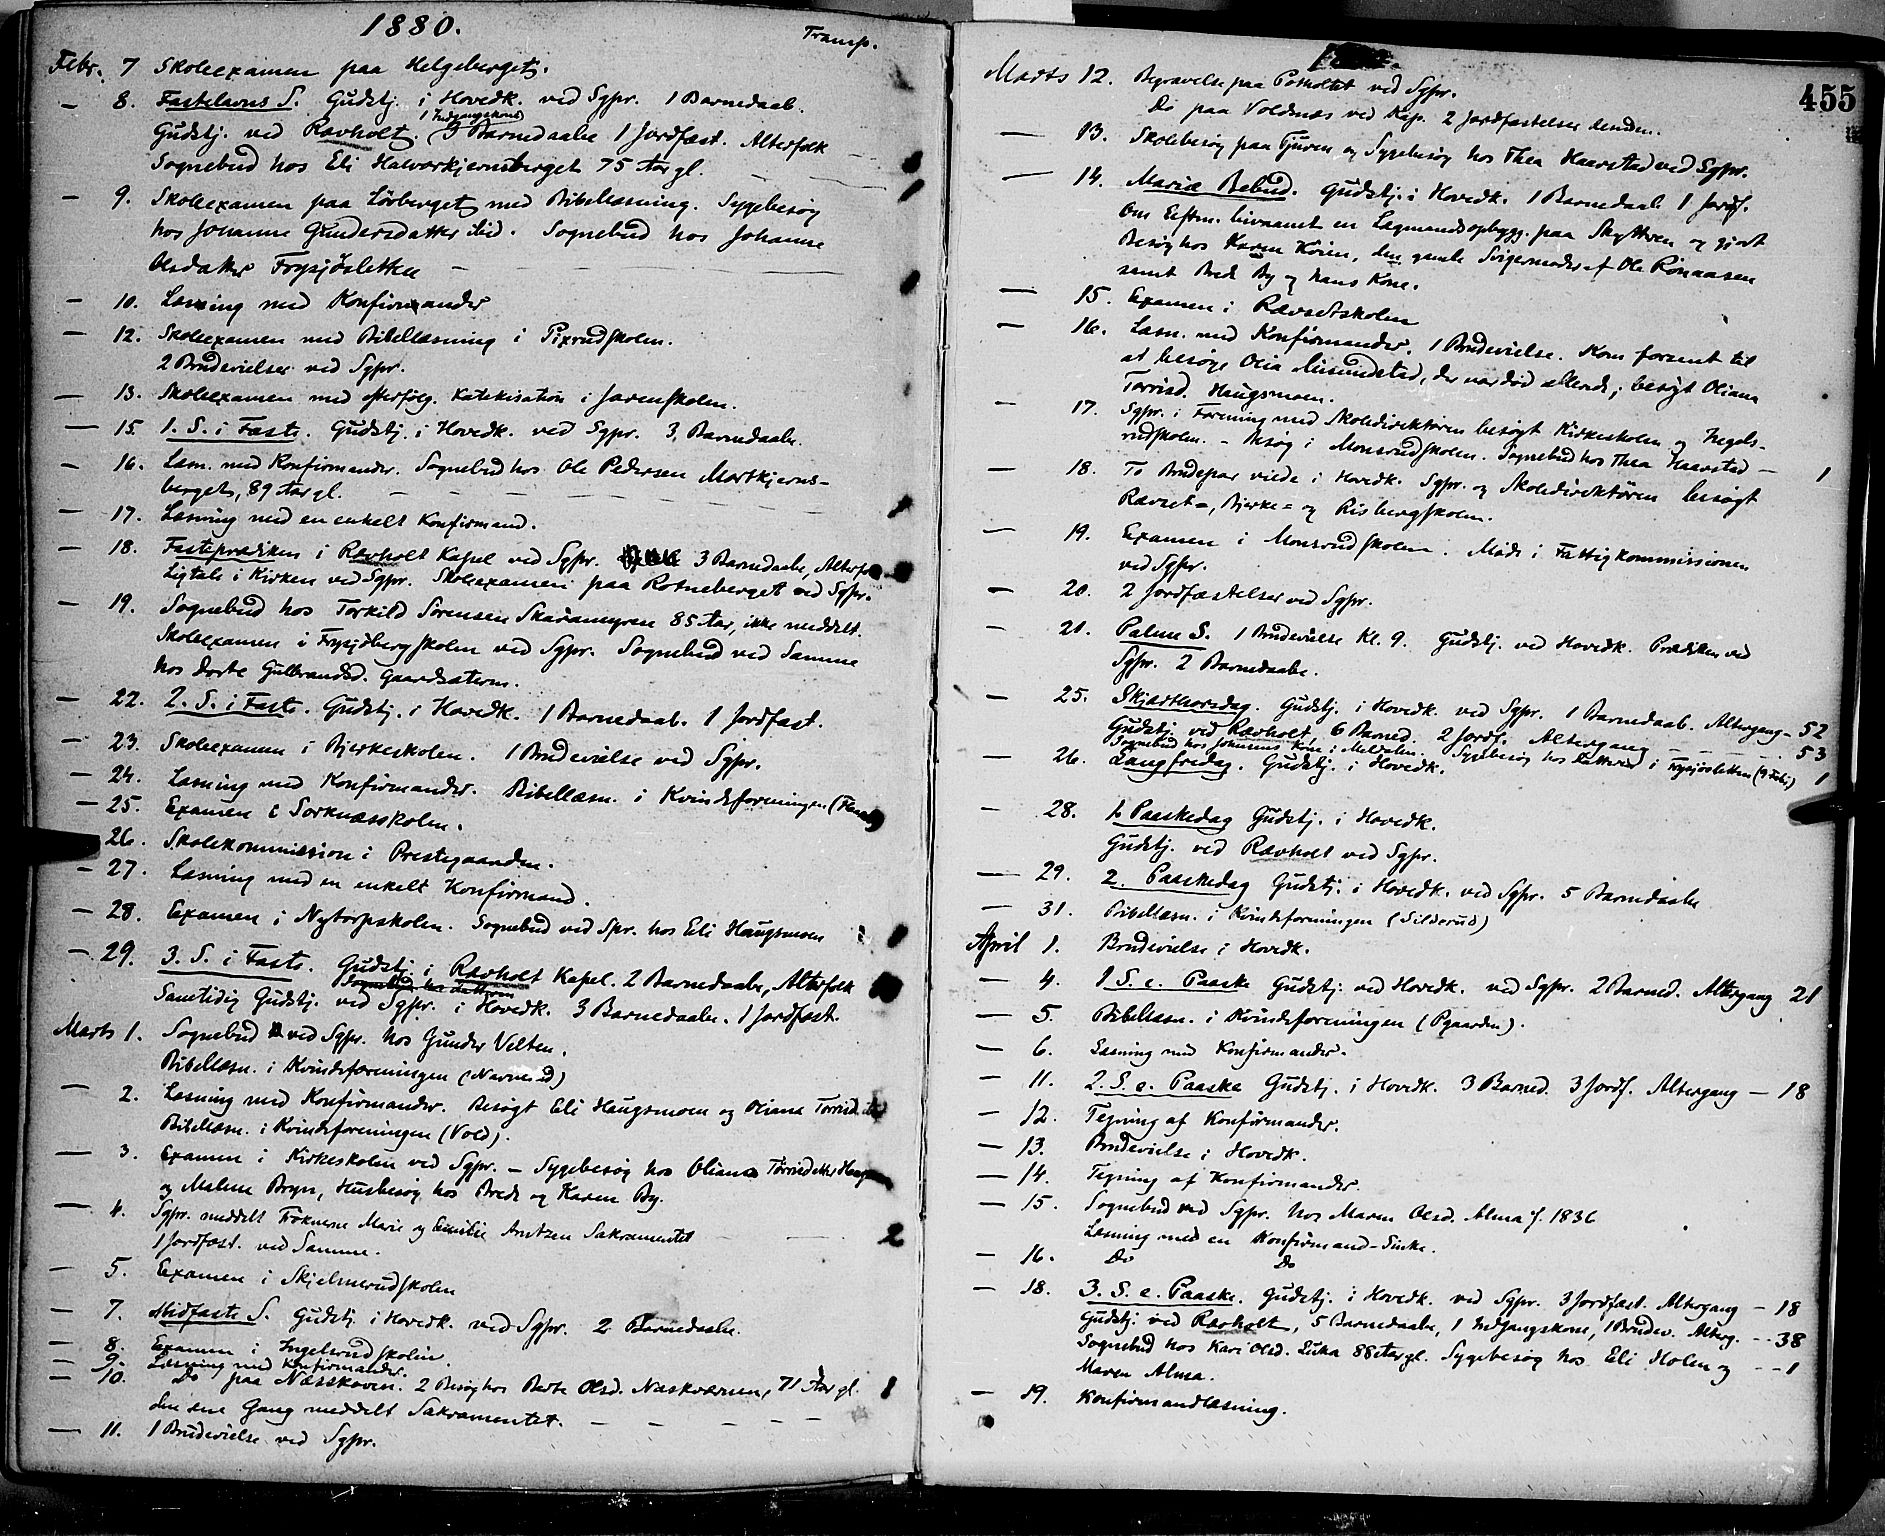 1880.
Transp.
Febr. 7 Skoleexamen paa Helgeberget.
— 8. Fastelavns S. Gudstj. i Hovedk. ved Sgpr. 1 Barnedaab.
1 Indgangskone
Gudstj. ved Ravholt. 9 Barnedaabe 1 Jordfæst. Alterfolk
Sognebud hos Eli Halvorkjernsberget 75 Aar gl.
— 9. Skoleexamen paa Lørberget med Bibellæsning. Sygebesøg
hos Johanne Gundersdatter ibid. Sognebud hos Johanne
Olsdatter Frysjøsletten
— 10. Læsning med Konfirmander
— 12. Skoleexamen med Bibellæsning i Pixrudskolen.
2 Brudevielser ved Sgpr.
— 13. Skoleexamen med efterfølg. Katekisation i Jorenskolen.
— 15. 1. S. i Faste. Gudstj. i Hovedk. ved Sgpr. 3 Barnedaabe.
— 16. Læsn. med Konfirmander. Sognebud hos Ole Pedersen Mortkjerns-
berget, 89 Aar gl.
— 17. Læsning med en enkelt Konfirmand.
— 18. Fasteprædiken i Ravholt Kapel ved Sgpr. 3 Barnedaabe, Alterfolk
Ligtale i Kirken ved Sgpr. Skoleexamen paa Rotneberget ved Sgpr.
— 19. Sognebud hos Torkild Sørensen Skaramyren 85 Aar, ikke meddelt.
Skoleexamen i Frysjøbergskolen ved Sgpr. Sognebud ved Samme
hos Dorte Gulbrandsd. Gaardsæteren.
— 22. 2. S. i Faste. Gudstj. i Hovedk. 1 Barnedaab. 1 Jordfæst.
— 23. Skoleexamen i Bjerkeskolen. 1 Brudevielse ved Sgpr.
— 24. Læsning med Konfirmander. Bibellæsn. i Kvindeforeningen
— 25. Examen i Sorknæsskolen.
26. Skolekommission i Prestegaarden.
— 27. Læsning med en enkelt Konfirmand.
— 28. Examen i Nytorpskolen. Sognebud ved Spr. hos Eli Haugsmoen
— 29. 3. S. i Faste. Gudstj. i Ravholt Kapel. 2 Barnedaabe, Alterfolk
Samtidig Gudstj. ved Sgpr. i Hovedk. 3 Barnedaabe. 1 Jordfæst.
Marts 1. Sognebud ved Sgpr. hos Gunder Velten.
Bibellæsn. i Kvindeforeningen
— 2. Læsning med Konfirmander. Besøgt Eli Haugsmoen og Oliana Torrisd. ibd
Bibellæsn. i Kvindeforeningen (Vold).
— 3. Examen i Kirkeskolen ved Sgpr. – Sygebesøg hos Oliana Torrisdatter
og Malene Bryn, Husbesøg hos Brede og Karen By.
— 4. Sgpr. meddelt Frøknerne Marie og Emilie Arntzen Sakramentet — 2
1 Jordfæst. ved Samme.
— 5. Examen i Skjelmerudskolen
— 7. Midfaste S. Gudstj. i Hovedk. ved Sgpr. 2 Barnedaabe.
— 8. Examen i Ingelsrudskolen.
— 9. Læsning med Konfirmander.
— 10. Do paa Næsskoven. 2 Besøg hos Berte Olsd. Næskværnen, 71 Aar gl. 1
den ene Gang meddelt Sakramentet.
— 11. 1 Brudevielse ved Sgpr.
455
Marts 12. Begravelse paa Potholtet ved Sgpr.
Do paa Voldnæs ved Kap. 2 Jordfæstelser desuden.
— 13. Skolebesøg paa Tjuren og Sygebesøg hos Thea Haarstad ved Sgpr.
— 14. Mariæ Bebud. Gudstj. i Hovedk. 1 Barnedaab 1 Jordf.
Om Eftm. bivaanet en Lægmandsopbygg. paa Skytteren og gjort
Besøg hos Karen Köien, den gamle Svigermoder af Ole Rönaasen
samt Brede By og hans Kone.
— 15. Examen i Rævsetskolen
— 16. Læsn. med Konfirmander. 1 Brudevielse. Kom forsent til
at besøge Olia Aasumdstad, der var død allerede; besøgt Oliana
Torrisd. Haugsmoen.
— 17. Sgpr. i Forening med Skoledirektøren besøgt Kirkeskolen og Ingels-
rudskolen. – Besøg i Monsrudskolen. Sognebud hos Thea Haarstad — 1
— 18. To Brudepar viede i Hovedk. Sgpr. og Skoledirektøren besøgt
Rævset=, Bjerke= og Risbergskolen.
— 19. Examen i Monsrudskolen. Møde i Fattigkommissionen
ved Sgpr.
— 20. 2 Jordfæstelser ved Sgpr.
— 21. Palme S. 1 Brudevielse Kl. 9. Gudstj. ved Hovedk. Prædiken ved
Sgpr. 2 Barnedaabe.
— 25. Skjærthorsdag. Gudstj. i Hovedk. ved Sgpr. 1 Barnedaab. Altergang – 52
Gudstj. ved Ravholt, 6 Barned. 2 Jordf. Altergang — 53
Sognebud hos Johannes' Kone i Meldalen. Sygebesøg hos Datteren i Frysjøsletten (9 Febr.) 1
— 26. Langfredag. Gudstj. i Hovedk.
— 28. 1. Paaskedag Gudstj. i Hovedk.
Gudstj. ved Ravholt ved Sgpr.
— 29. 2. Paaskedag Gudstj. i Hovedk. ved Sgpr. 5 Barnedaabe
— 31. Bibellæsn. i Kvindeforeningen (Silderud)
April 1. Brudevielse i Hovedk.
— 4. 1 S. e. Paaske Gudstj. ved Hovedk. ved Sgpr. 2 Barned. Altergang 21
— 5. Bibellæsn. i Kvindeforeningen (Pgaarden).
— 6. Læsning med Konfirmander.
— 11. 2. S. e. Paaske Gudstj. i Hovedk. 3 Barned. 3 Jordf. Altergang — 18
— 12. Tegning af Konfirmander.
— 13. Brudevielse i Hovedk.
— 14. Tegning af Konfirmander.
— 15. Sognebud ved Sgpr. hos Maren Olsd. Alma f. 1836
Læsning med en Konfirmand-Sinke.
— 16. Do Do
— 18. 3. S. e. Paaske. Gudstj. i Hovedk. ved Sgpr. 3 Jordfæst. Altergang – 18
Gudstj. ved Ravholt, 5 Barnedaabe, 1 Indgangskone, 1 Brudev. Alterg. -- 38
Sognebud hos Kari Olsd. Luka 88 Aar gl. Sygebesøg hos Eli Holen og -- 1
Maren Alma.
— 19. Konfirmandlæsning.